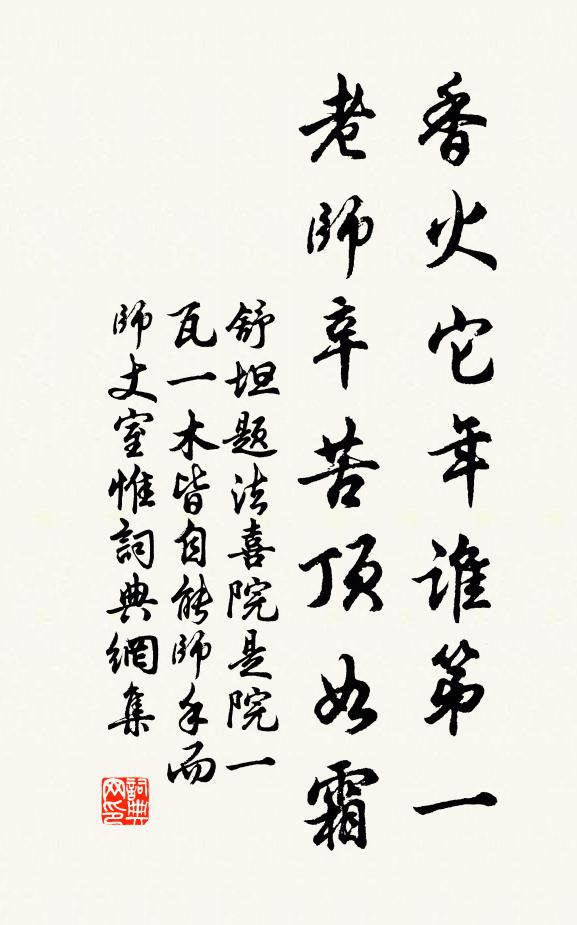 香火它年谁第一
老師辛苦頂如霜
舒坦题法喜院是院一
瓦一木皆自能師手而
師丈室惟詞典網集
詞典网印